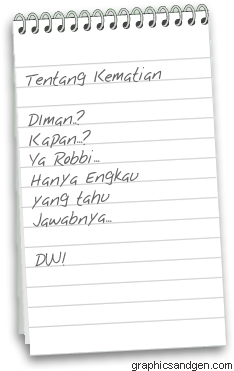 Tentang Kematian
DIman..?
Kapan...?
Ya Robbi...
Hanya Engkau
yang tahu
Jawabnya...
DWI
graphicsandgen.com